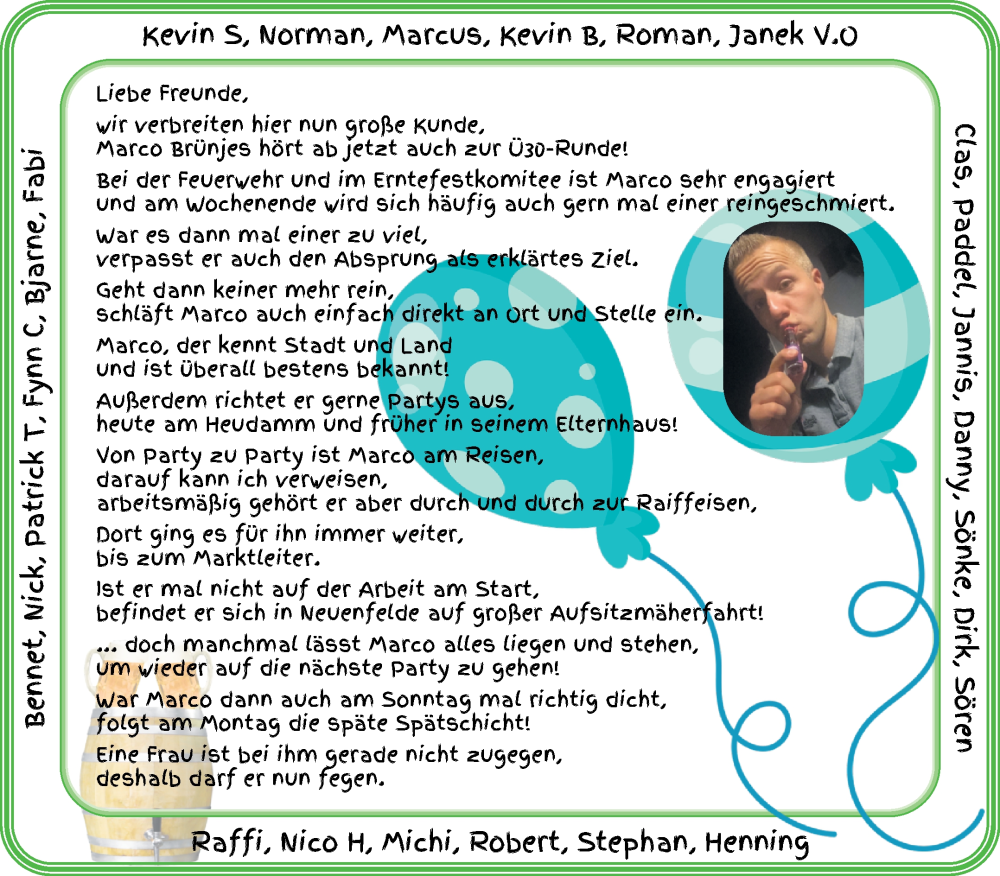 Kevin S, Norman, Marcus, Kevin B, Roman, Janek V.O
Liebe Freunde,
wir verbreiten hier nun große Kunde,
Marco Brünjes hört ab jetzt auch zur Ü30-Runde!
Bei der Feuerwehr und im Erntefestkomitee ist Marco sehr engagiert
und am Wochenende wird sich häufig auch gern mal einer reingeschmiert.
War es dann mal einer zu viel,
verpasst er auch den Absprung als erklärtes Ziel.
Geht dann keiner mehr rein,
schläft Marco auch einfach direkt an Ort und Stelle ein.
Marco, der kennt Stadt und Land
und ist überall bestens bekannt!
Außerdem richtet er gerne Partys aus,
heute am Heudamm und früher in seinem Elternhaus!
Von Party zu Party ist Marco am Reisen,
darauf kann ich verweisen,
arbeitsmäßig gehört er aber durch und durch zur Raiffeisen,
Dort ging es für ihn immer weiter,
bis zum Marktleiter.
Ist er mal nicht auf der Arbeit am Start,
befindet er sich in Neuenfelde auf großer Aufsitzmäherfahrt!
... doch manchmal lässt Marco alles liegen und stehen,
um wieder auf die nächste Party zu gehen!
War Marco dann auch am Sonntag mal richtig dicht,
folgt am Montag die späte Spätschicht!
Eine Frau ist bei ihm gerade nicht zugegen,
deshalb darf er nun fegen.
Bennet, Nick, Patrick T, Fynn C, Bjarne, Fabi
Clas, Paddel, Jannis, Danny, Sönke, Dirk, Sören
Raffi, Nico H, Michi, Robert, Stephan, Henning